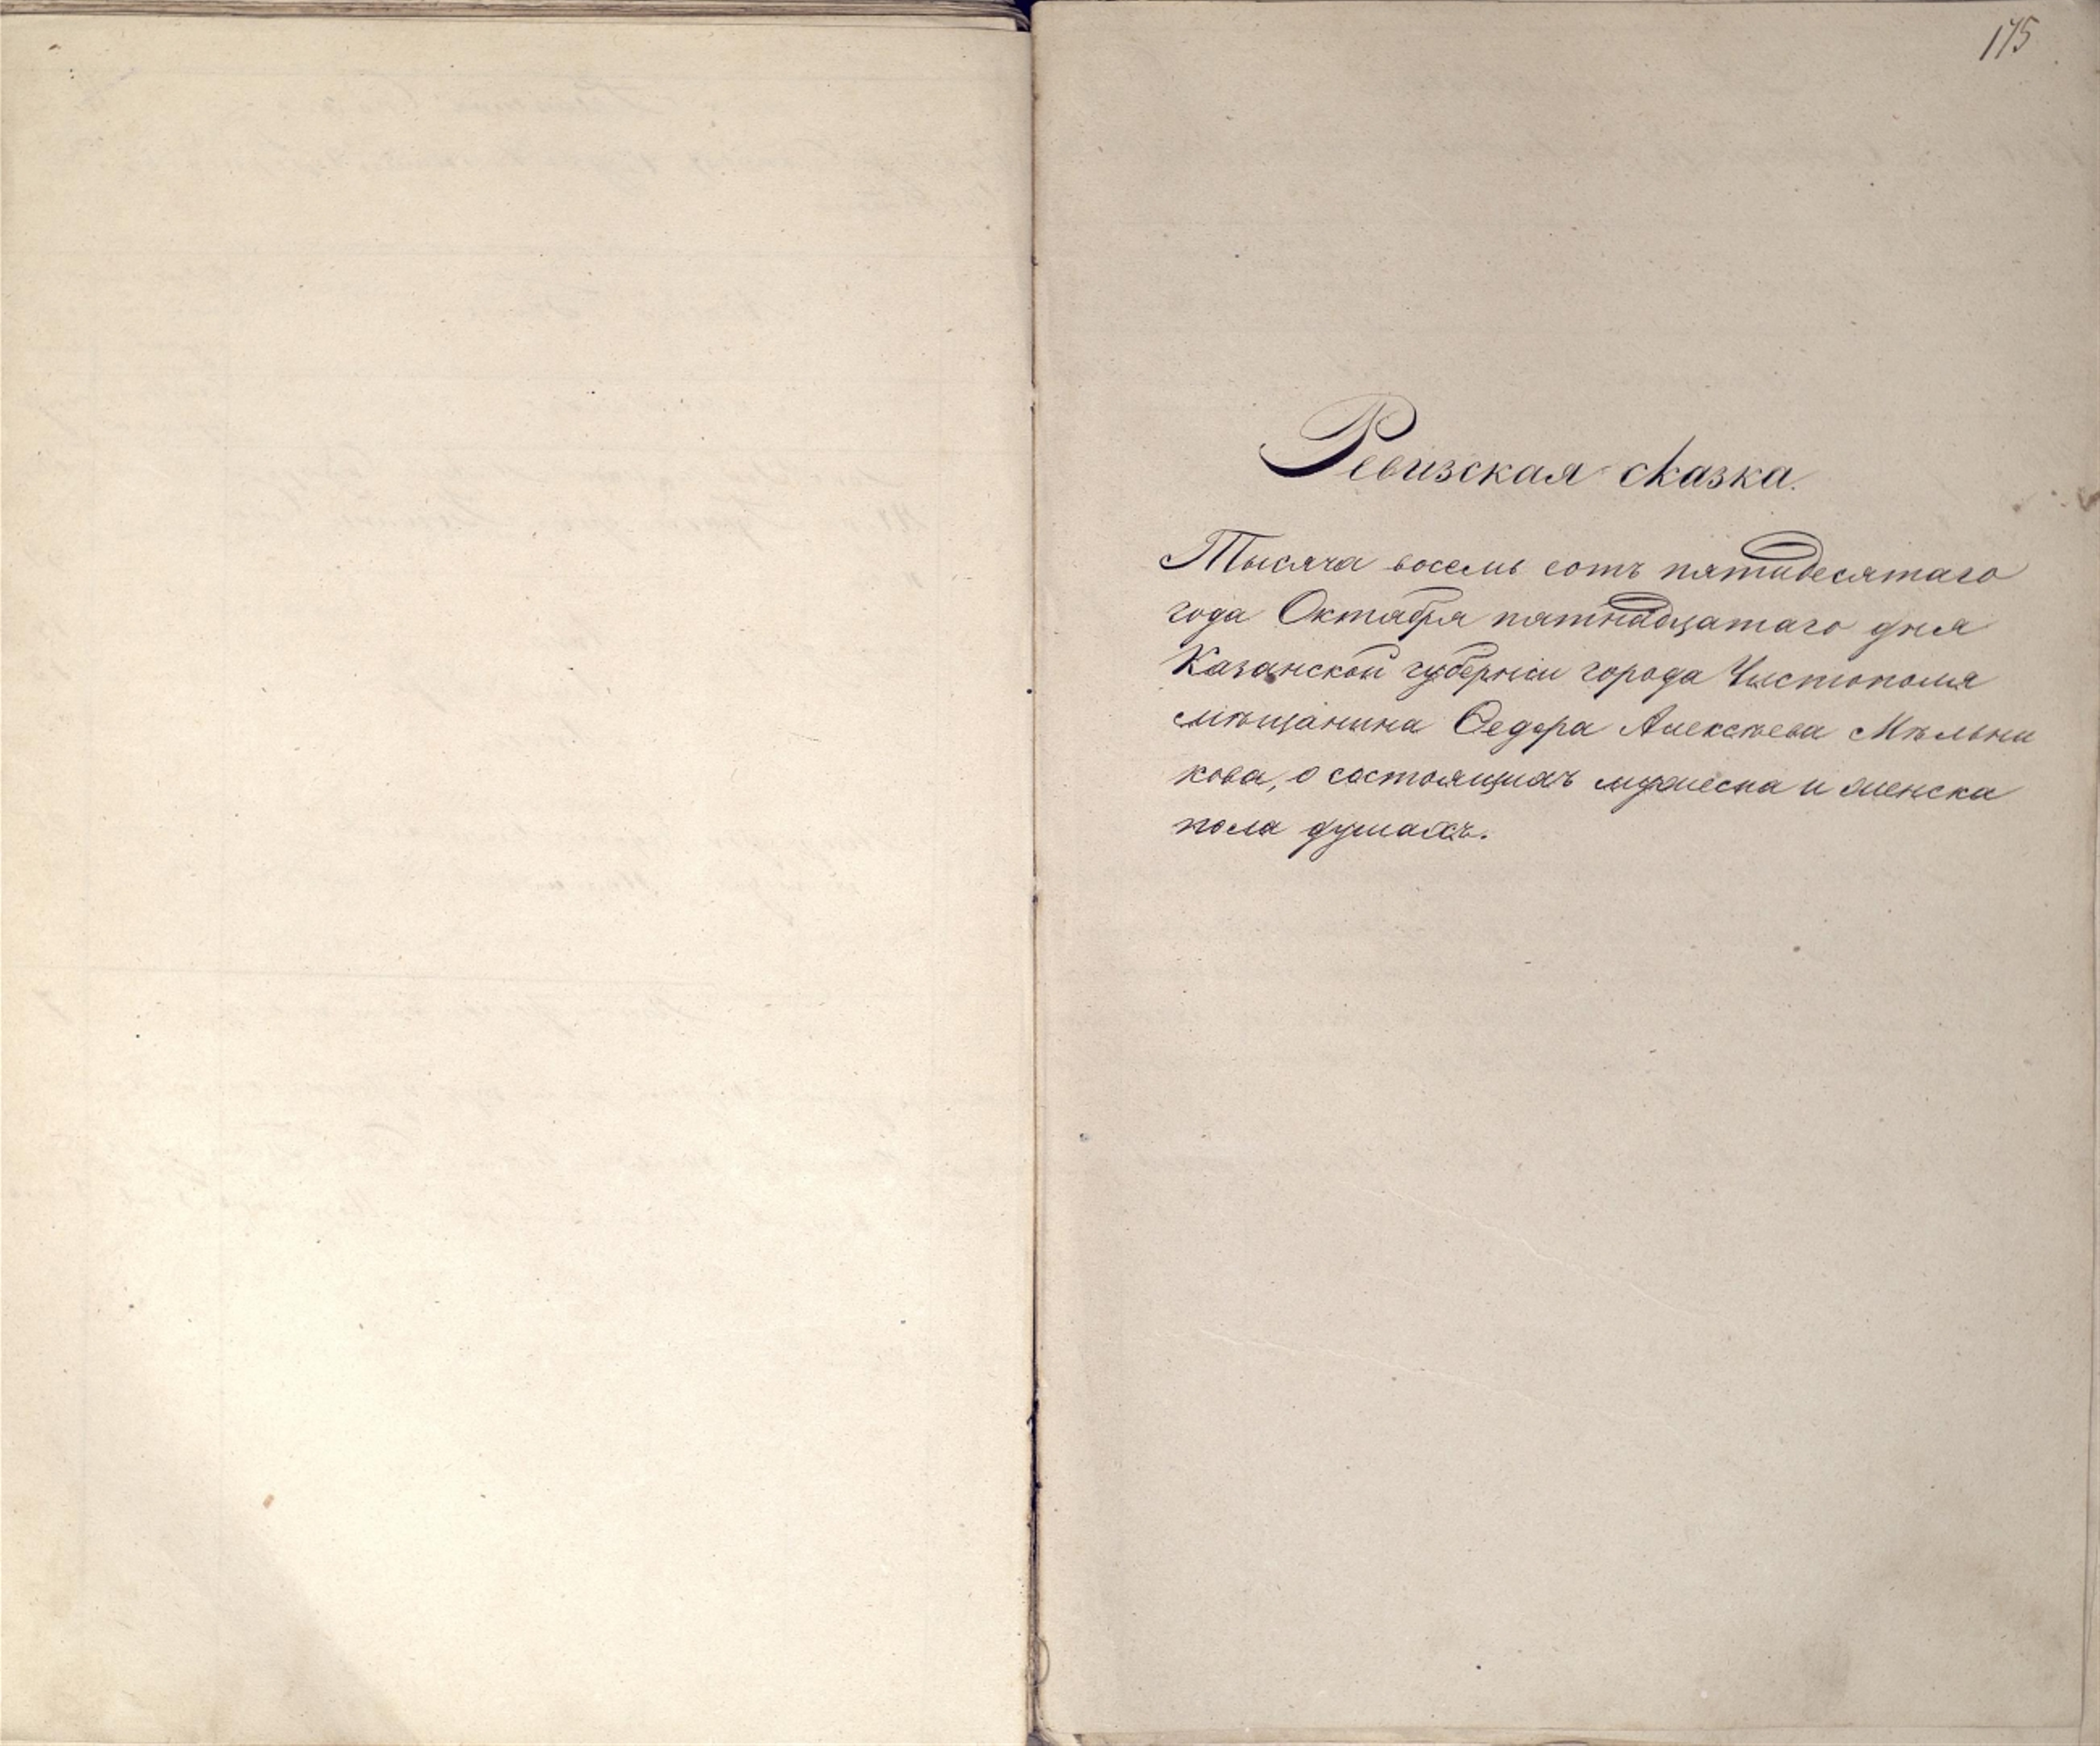 175
Ревизская сказка.
Тысяча восемь сотъ пятидесятаго
года Октября пятнадцатаго дня
Казанской губернiи города Чистополя
мѣщанина Ѳедора Алексѣева Мѣльни
кова, о состоящихъ мужеска и женска
пола душахъ.